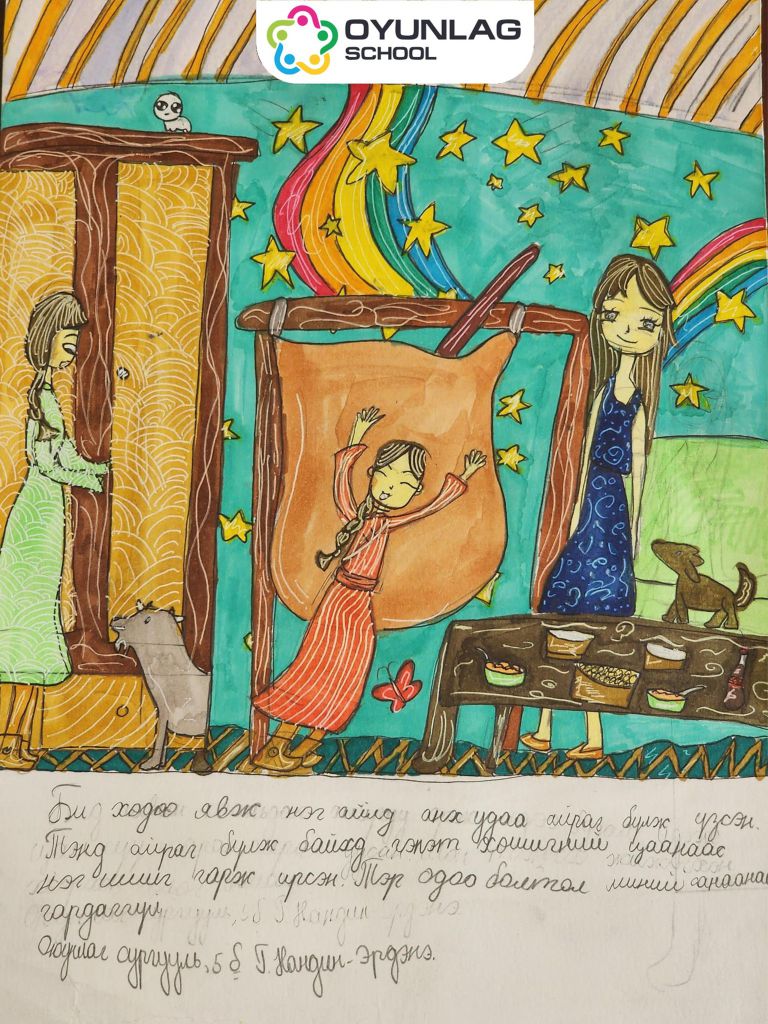 OYUNLAG
SCHOOL
Би хөдөө явж нэг айлд анх удаа айраг бүлж үзсэн.
Тэнд айраг бүлж байхд гэнэт хөшигний цаанаас
нэг ишиг гарж ирсэн. Тэр одоо болтол миний санаанаас
гардаггүй
Оюунлаг сургууль, 5б Г. Нандин-Эрдэнэ.